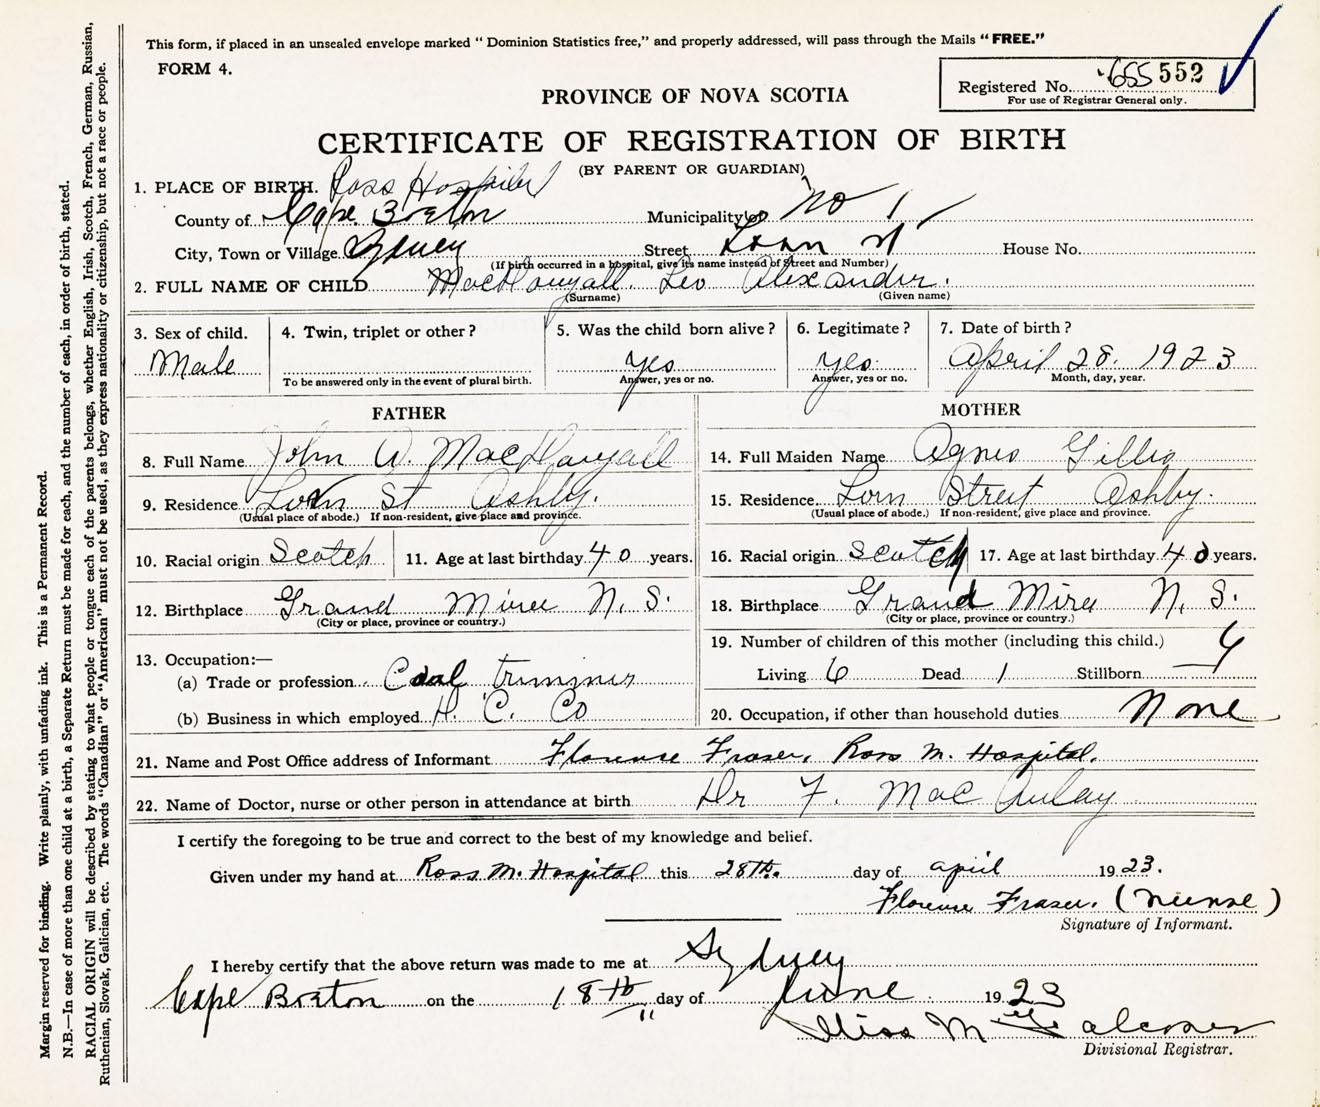 This form, if placed in an unsealed envelope marked “ Dominion Statistics free,” and properly addressed, will pass through the Mails “ FREE.”
FORM 4.
Registered No. 655 552
For use of Registrar General only.
PROVINCE OF NOVA SCOTIA
CERTIFICATE OF REGISTRATION OF BIRTH
(BY PARENT OR GUARDIAN)
1. PLACE OF BIRTH. Ross Hospital
County of Cape Breton Municipality of No 1
City, Town or Village Sydney Street Lorn St House No.
(If birth occurred in a hospital, give its name instead of Street and Number)
2. FULL NAME OF CHILD MacDougall. Leo Alexander.
(Surname) (Given name)
3. Sex of child. 4. Twin, triplet or other? 5. Was the child born alive? 6. Legitimate? 7. Date of birth?
Male yes yes. April 28. 1923
To be answered only in the event of plural birth. Answer, yes or no. Answer, yes or no. Month, day, year.
FATHER
8. Full Name John W. MacDougall
9. Residence Lorn St Ashby.
(Usual place of abode.) If non-resident, give place and province.
10. Racial origin Scotch 11. Age at last birthday 40 years.
12. Birthplace Grand Mira N. S.
(City or place, province or country.)
13. Occupation:—
(a) Trade or profession Coal trimmer
(b) Business in which employed D. C. Co
MOTHER
14. Full Maiden Name Agnes Gillis
15. Residence Lorn Street Ashby.
(Usual place of abode.) If non-resident, give place and province.
16. Racial origin Scotch 17. Age at last birthday 40 years.
18. Birthplace Grand Mira N. S.
(City or place, province or country.)
19. Number of children of this mother (including this child.)
Living 6 Dead 1 Stillborn —
20. Occupation, if other than household duties None
21. Name and Post Office address of Informant Florence Fraser, Ross M. Hospital.
22. Name of Doctor, nurse or other person in attendance at birth Dr F. MacAulay
I certify the foregoing to be true and correct to the best of my knowledge and belief.
Given under my hand at Ross M. Hospital this 28th. day of april 1923.
Florence Fraser. (Nurse)
Signature of Informant.
I hereby certify that the above return was made to me at Sydney
Cape Breton on the 18th day of June 1923
Miss M
Divisional Registrar.
Margin reserved for binding. Write plainly, with unfading ink. This is a Permanent Record.
N.B.—In case of more than one child at a birth, a Separate Return must be made for each, and the number of each, in order of birth, stated.
RACIAL ORIGIN will be described by stating to what people or tongue each of the parents belongs, whether English, Irish, Scotch, French, German, Russian,
Ruthenian, Slovak, Galician, etc. The words “Canadian” or “American” must not be used, as they express nationality or citizenship, but not a race or people.